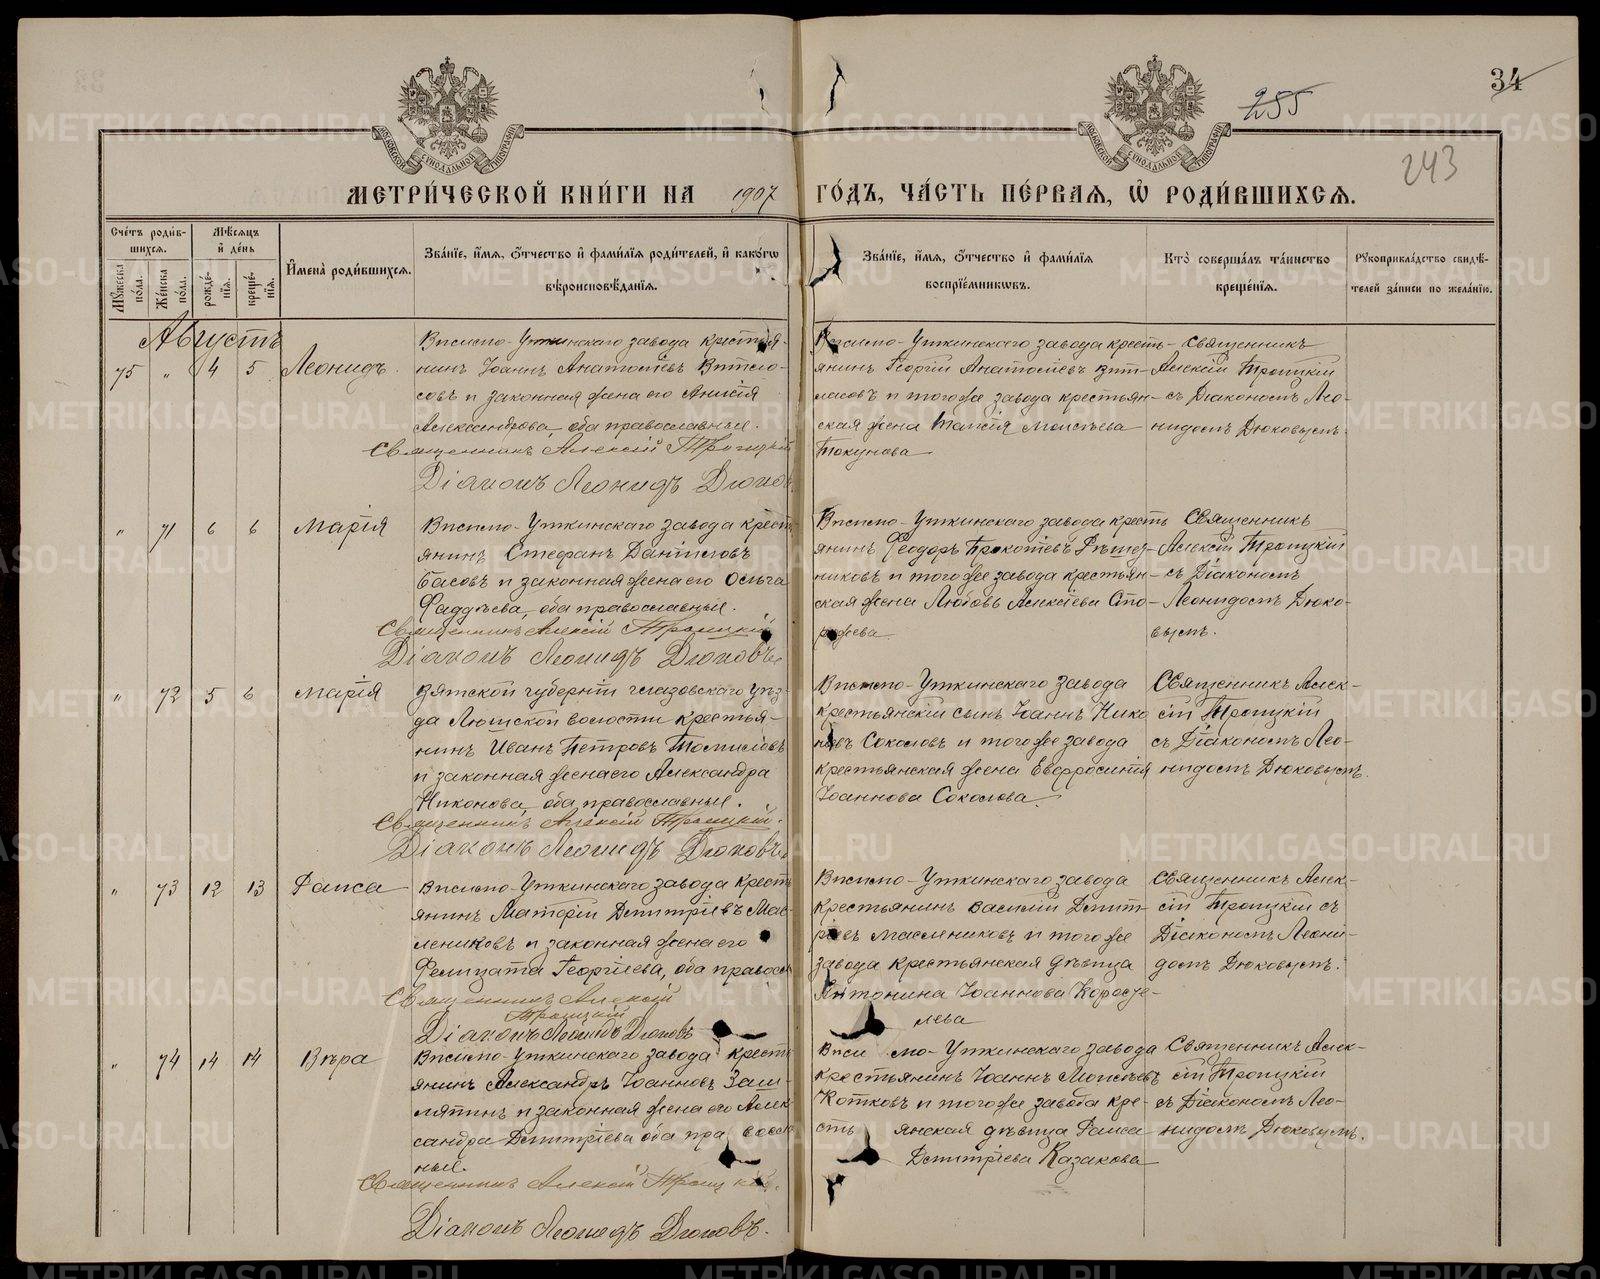 255
34
243
МОСКОВСКОЙ СУНОДАЛЬНОЙ ТИПОГРАФІИ
МОСКОВСКОЙ СУНОДАЛЬНОЙ ТИПОГРАФІИ
МЕТРИ́ЧЕСКОЙ КНИ́ГИ НА 1907 ГО́ДЪ, ЧА́СТЬ ПЕ́РВАЯ, Ѽ РОДИ́ВШИХСЯ.
Сче́тъ роди́в-
шихся.
Мѣ́сяцъ
и҆ де́нь
Мꙋ́жеска
по́ла.
Же́нска
по́ла.
рожде́-
нїя.
креще́-
нїя.
И҆мена̀ роди́вшихся.
Зва́нїе, и҆́мя, ѻ҆́тчество и҆ фами́лїя роди́телей, и҆ како́гѡ
вѣроисповѣ́данїя.
Зва́нїе, и҆́мя, ѻ҆́тчество и҆ фами́лїя
воспрїе́мникѡвъ.
Кто̀ соверша́лъ та́инство
креще́нїя.
Рꙋкоприкла́дство свидѣ́-
телей за́писи по жела́нїю.
Августъ
75 " 4 5 Леонидъ.
Висимо-Уткинскаго завода крестья-
нинъ Іоаннъ Анатоліевъ
и законная жена его Анисія
Александрова, оба православные.
Священникъ Алексій Троицкій
Діаконъ Леонидъ Дюковъ
Висимо-Уткинскаго завода кресть-
янинъ Георгій Анатоліевъ
и того же завода крестьян-
ская жена Таисія Моисѣева
Токунова
Священникъ
Алексій Троицкій
съ Діакономъ Лео-
нидомъ Дюковымъ.
" 71 6 6 Марія
Висимо-Уткинскаго завода крест
янинъ Стефанъ Даніиловъ
Басовъ и законная жена его Ольга
Фаддѣева, оба православные.
Священникъ Алексій Троицкій
Діаконъ Леонидъ Дюковъ
Висимо-Уткинскаго завода кресть
янинъ Феодоръ Прокопіевъ Рѣшет-
никовъ и того же завода крестьян-
ская жена Любовь Алексіева
Священникъ
Алексій Троицкій
съ Діакономъ
Леонидомъ Дюко-
вымъ.
" 72 5 6 Марія
Вятской губерніи Глазовскаго уѣз-
да волости крестья-
нинъ Иванъ Петровъ
и законная жена его Александра
Никонова, оба православные.
Священникъ Алексій Троицкій.
Діаконъ Леонидъ Дюковъ
Висимо-Уткинскаго завода
крестьянскій сынъ Іоаннъ Нико
новъ Соколовъ и того же завода
крестьянская жена Евфросинія
Іоаннова Соколова.
Священникъ Алек-
сій Троицкій
съ Діакономъ Лео-
нидомъ Дюковымъ.
" 73 12 13 Раиса
Висимо-Уткинскаго завода крест
янинъ Матфій Димитріевъ Мас-
лениковъ и законная жена его
Фелицата Георгіева, оба правосл
Священникъ Алексій
Троицкій
Діаконъ Леонидъ Дюковъ
Висимо-Уткинскаго завода
крестьянинъ Василій Димит-
ріевъ Маслениковъ и того же
завода крестьянская дѣвица
Антонина Іоаннова Короде-
лева
Священникъ Алек-
сій Троицкій съ
Діакономъ Леони-
домъ Дюковымъ.
" 74 14 14 Вѣра
Висимо-Уткинскаго завода крест
янинъ Александръ Іоанновъ Заш-
ляпинъ и законная жена его Алек
сандра Димитріева оба правосла
ные.
Священникъ Алексій Троицкій.
Діаконъ Леонидъ Дюковъ.
Висимо-Уткинскаго завода
крестьянинъ Іоаннъ Моисѣевъ
Котковъ и того же завода кре-
стьянская дѣвица Раиса
Димитріева Казакова
Священникъ Алек-
сій Троицкій
съ Діакономъ Лео-
нидомъ Дюковымъ.
METRIKI.GASO-URAL.RU